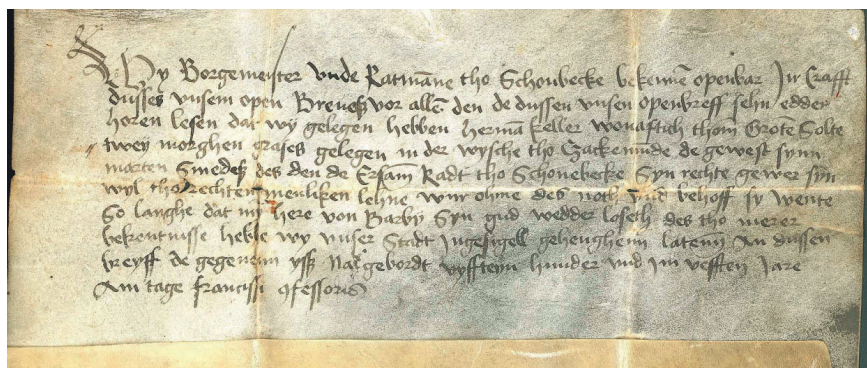 Wy Borgemeister vnde Ratmāne tho Schonbecke bekennē openbar Jn Crafft
dusses vnsem open Breueß vor allen den de dussen vnsen openbreff sehn edder
horen lesen dat wy gelegen hebben hermā keller wonaftich thom Grotē Solte
twey morghen grases gelegen in der wysche tho Gackenude de gewest synn
marten Smedeß des den de Ersam Radt tho Schonebecke Syn rechte gewer syn
wyl tho rechten menliken lehne wur ohme des noth vnd behoff sy wente
So langhe dat my here von Barby Syn gud wedder loseth des tho merer
bekentnisse hebbe wy vnser Stadt Jngesigell gehenghenn latenn An dussen
breyff de gegeuenn yß Na gebordt vyffteyn hunder vnd jm vefften Jare
Am tage francissi 9fessoris